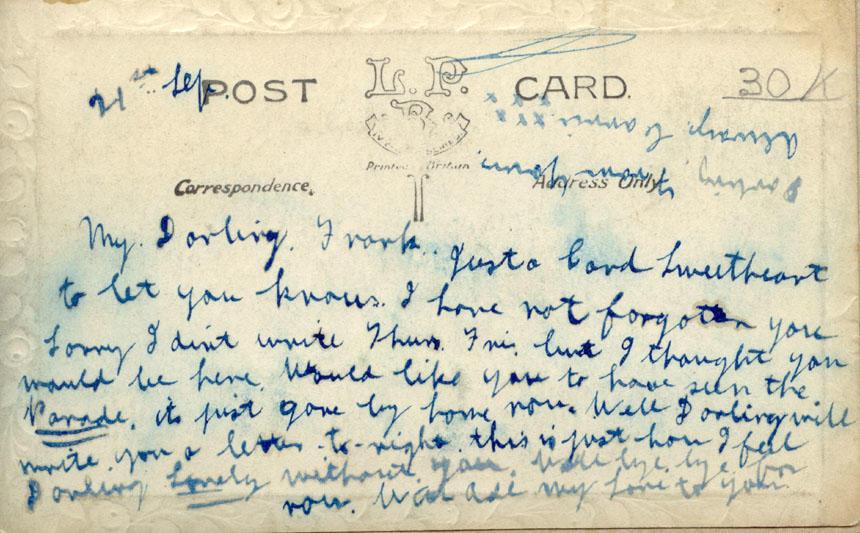 21st Sep.
POST CARD.
L. P.
30/K
Printed Britain
Correspondence.
Address Only
My Darling Frank. Just a Card Sweetheart
to let you know I have not forgotten you
Sorry I dint write Thurs. Fri. but I thought you
would be here. Would like you to have seen the
Parade, its just gone by home now. Well Darling will
write you a letter to-night. this is just how I feel
Darling Lonely without you. Well bye bye for
now. With All my love to you.
from Your
Loving
Always
x x x x x x